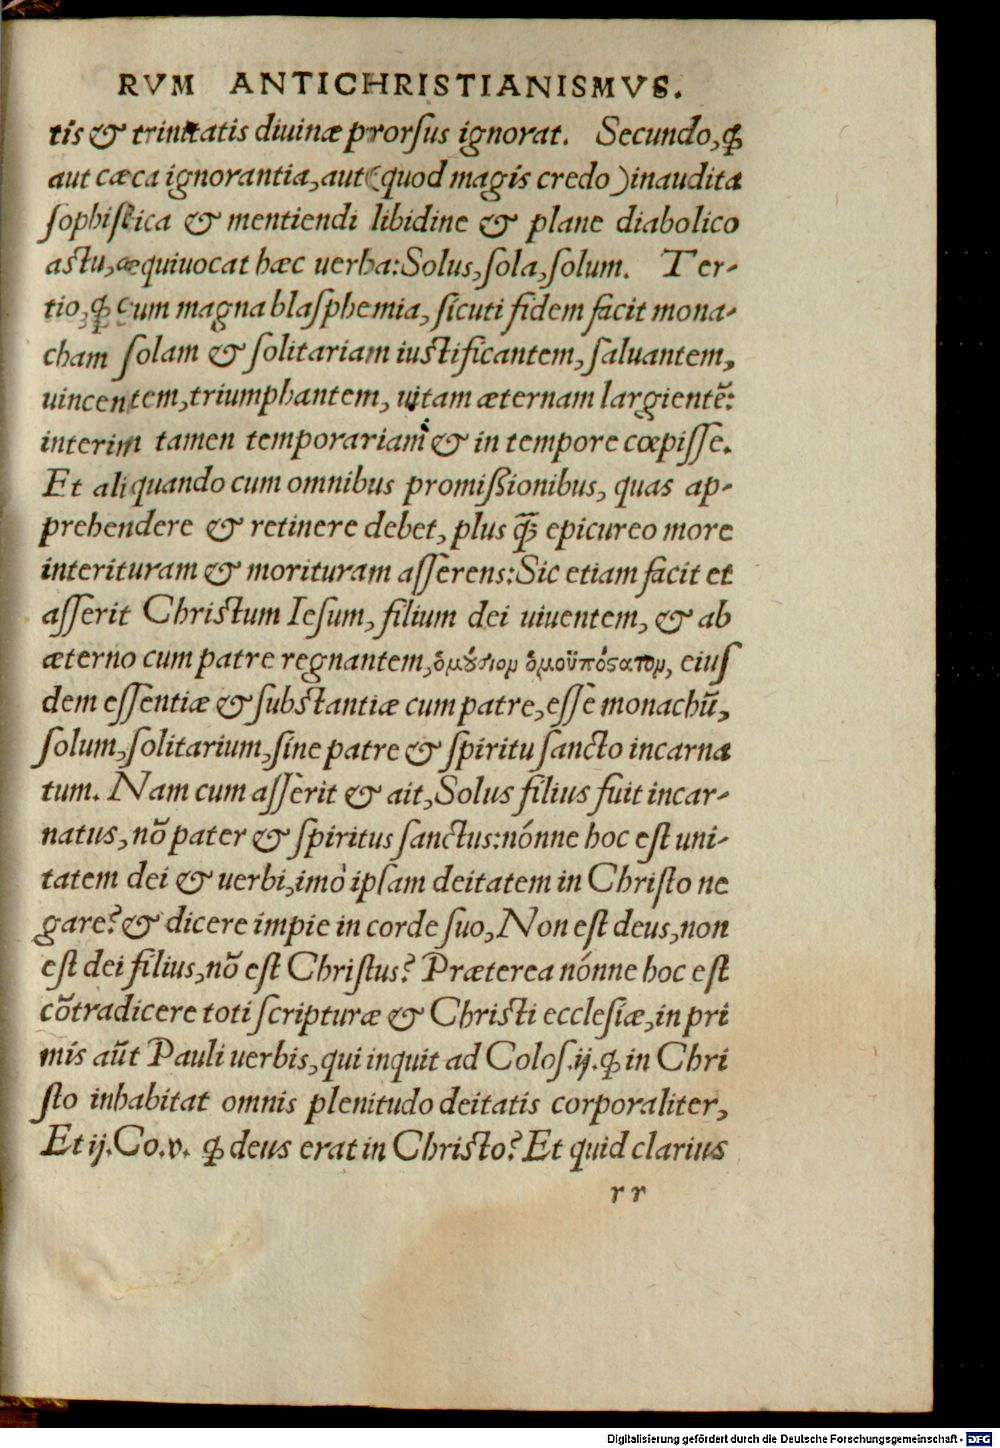 RVM ANTICHRISTIANISMVS.
tis & trinitatis diuinæ prorſus ignorat. Secundo, ꝙ
aut cæca ignorantia, aut (quod magis credo) inaudita
ſophiſtica & mentiendi libidine & plane diabolico
aſtu, æquiuocat hæc uerba: Solus, ſola, ſolum. Ter-
tio, ꝙ cum magna blaſphemia, ſicuti fidem facit mona-
cham ſolam & ſolitariam iuſtificantem, ſaluantem,
uincentem, triumphantem, uitam æternam largientẽ:
interim tamen temporariam & in tempore cœpiſſe.
Et aliquando cum omnibus promiſsionibus, quas ap-
prehendere & retinere debet, plus ꝙ̃ epicureo more
interituram & morituram aſſerens: Sic etiam facit et
aſſerit Chriſtum Ieſum, filium dei uiuentem, & ab
æterno cum patre regnantem, ὁμȣ́σιον ὁμοϋπόςατον, eiuſ
dem eſſentiæ & ſubſtantiæ cum patre, eſſe monachũ,
ſolum, ſolitarium, ſine patre & ſpiritu ſancto incarna
tum. Nam cum aſſerit & ait, Solus filius fuit incar-
natus, nõ pater & ſpiritus ſanctus: nónne hoc eſt uni-
tatem dei & uerbi, imò ipſam deitatem in Chriſto ne
gare? & dicere impie in corde ſuo, Non eſt deus, non
eſt dei filius, nõ eſt Chriſtus? Præterea nónne hoc eſt
cõtradicere toti ſcripturæ & Chriſti eccleſiæ, in pri
mis aũt Pauli uerbis, qui inquit ad Coloſ. ij. ꝙ in Chri
ſto inhabitat omnis plenitudo deitatis corporaliter,
Et ij. Co. v. ꝙ deus erat in Chriſto? Et quid clarius
rr
Digitalisierung gefördert durch die Deutsche Forschungsgemeinschaft - DFG